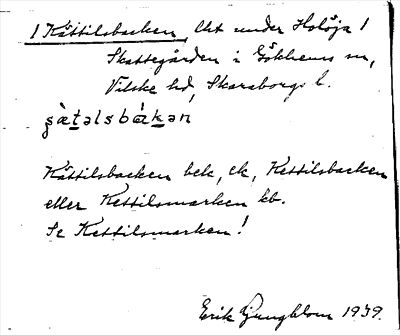 1 Kättilsbacken, lht under Holöja 1
Skattegården i Gökhems sn,
Vilske hd, Skaraborgs l.
ʂὰtəlsbákən
Kättilsbacken bek, ek, Kettilsbacken
eller Kettilsmarken kb.
Se Kettilsmarken!
Erik Ljungblom 1939.